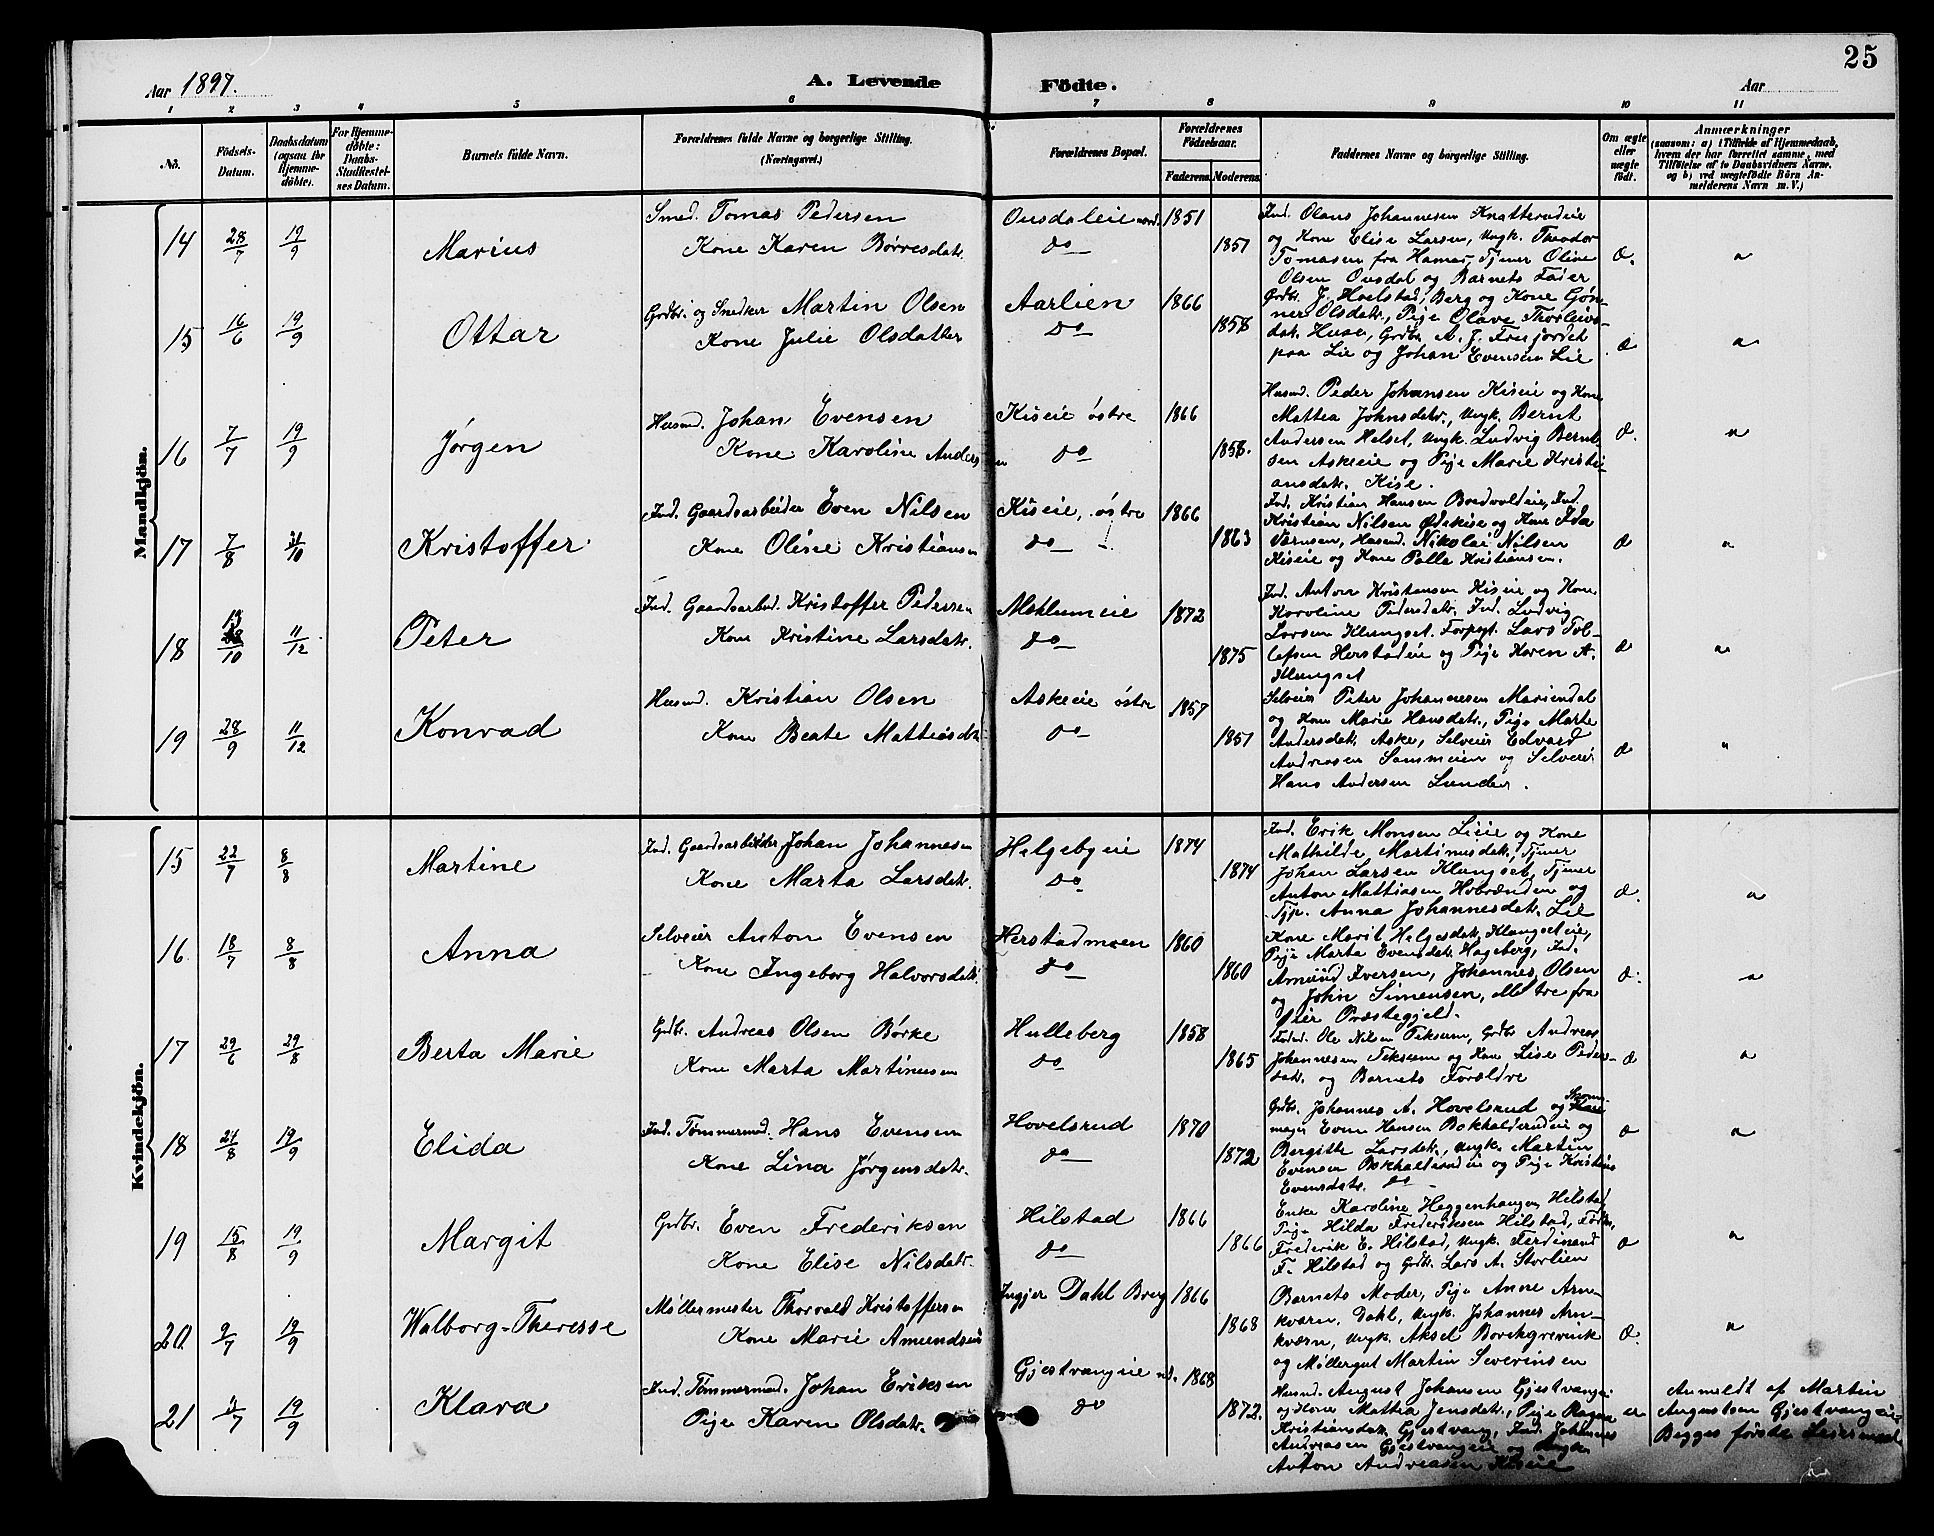 25
Aar 1897.
A. Levende Födte.
Aar
1 2 3 4 5 6 7 8 9 10 11
No.
Födsels-Datum.
Daabsdatum (ogsaa for Hjemmedöbte).
For Hjemmedöbte: Daabs-Stadfæstelses Datum.
Barnets fulde Navn.
Forældrenes fulde Navne og borgerlige Stilling. (Næringsvei.)
Forældrenes Bopæl.
Forældrenes Födselsaar.
Faderens. Moderens.
Faddernes Navne og borgerlige Stilling.
Om ægte eller uægte födt.
Anmærkninger
(saasom: a) i Tilfælde af Hjemmedaab, hvem der har forrettet samme, med Tilföielse af to Daabsvidners Navne. og b) ved uægtefödte Börn Anmelderens Navn m. V.)
Mandkjön.
14 28/7 19/9 Marius
Smed. Tomas Pedersen
Kone Karen Børresdatr.
Onsdaleie nord. 1851
do 1851
Ind. Olaus Johannesen Knatterudeie
og Kone Elise Larsen, Ungk. Theodor
Tomasen fra Hamar, Tjener Oline
Olsen Onsdal og Barnets Fader
15 16/6 19/9 Ottar
Grdbr. og Snedker Martin Olsen
Kone Julie Olsdatter
Aarlien 1866
do 1858
Grdbr. J. Hoelstad, Berg og Kone Gøn-
ner Olsdatr., Pige Olave Thorleivs-
datr. Huse, Grdbr. A. J. Frisjordet
paa Lie og Johan Evensen Lie
16 7/7 19/9 Jørgen
Husmd. Johan Evensen
Kone Karoline Andersen
Kiseie østre 1866
do 1858.
Husmd. Peder Johansen Kiseie og Kone
Mattea Johnsdatr., Ungk. Bernt
Andersen Helset, Ungk. Ludvig Bernt-
sen Askeie og Pige Marie Kristi-
ansdatr. Kise.
17 7/8 31/10 Kristoffer
Ind. Gaardsarbeider Even Nilsen
Kone Oline Kristiansen
Kiseie, østre 1866
do 1863
Ind. Kristian Hansen Bredvoldeie, Ind.
Kristian Nilsen Ødekise og Kone Ida
Husmd. Nikolai Nilsen
Kiseie og Kone Palla Kristiansen.
18 13/10 11/12 Peter
Ind. Gaardsarbeid. Kristoffer Pedersen
Kone Kristine Larsdatr.
Meklumeie 1872
do 1875
Ind. Anton Kristensen Kiseie og Kone
Karoline Pedersdatr. Ind. Ludvig
Larsen Klungset. Forpagt. Lars Tol-
lefsen Herstadeie og Pige Karen A.
Klungset
19 28/9 11/12 Konrad
Husmd. Kristian Olsen
Kone Beate Mattiasdatr.
Askeeie østre 1857
do 1851
Selveier Peter Johannesen Mariendal
og Kone Marie Hansdatr., Pige Marte
Andersdatr. Aske, Selveier Edvard
Andreasen Sommeien og Selveier
Hans Andersen Lunder.
Kvindekjön.
15 22/7 8/8 Martine
Ind. Gaardsarbeider Johan Johannesen
Kone Marta Larsdatr.
Helgebyeie 1874
do 1874
Ind. Erik Monsen Lieie og Kone
Mathilde Martinusdatr., Tjener
Johan Larsen Klungset, Tjener
Anton Mattiasen Hobrænden og
Tjp. Anna Johannesdatr. Lie
16 18/7 8/8 Anna
Selveier Anton Evensen
Kone Ingeborg Halvorsdatr.
Herstadmoen 1860
do 1860
Kone Marit Helgesdatr. Klungseteie,
Pige Marta Evensdatr. Hageberg, Ind.
Amund Iversen, Johannes Olsen
og John Simensen, alle tre fra
Øier Præstegjeld.
17 29/6 29/8 Berta Marie
Grdbr. Andreas Olsen Børke
Kone Marta Martinusen
Hulleberg 1858
do 1865
Ole Nilsen Teksum, Grdbr. Andreas
Johannesen Teksum og Kone Lise Peders-
datr. og Barnets Forældre
18 24/8 19/9 Elida
Ind. Tømmermd. Hans Evensen
Kone Lina Jørgensdatr.
Hovelsrud 1870
do 1872
Grdbr. Johannes A. Hovelsrud og
Even Hansen Bokhalderudeie og
Bergitte Larsdatr., Ungk. Martin
Evensen Bokhalderudeie og Pige Kristine
Evensdatr. do
19 15/8 19/9 Margit
Grdbr. Even Frederiksen
Kone Elise Nilsdatr.
Hilstad 1866
do 1866
Enke Karoline Heggenhaugen, Hilstad,
Pige Hilda Frederiksen Hilstad,
Frederik E. Hilstad, Ungk. Ferdinand
F. Hilstad og Grdbr. Lars A. Storlien
20 9/7 19/9 Walborg-Theresse
Møllermester Thorvald Kristoffersen
Kone Marie Amundsen
Ingjer Dahl Brug 1866
1868
Barnets Moder, Pige Anne Arne-
kværn, Dahl, Ungk. Johannes Arn-
kværn, Ungk. Aksel Borchgrevink
og Møllergut Martin Severinsen
21 19/9 Klara
Ind. Tømmermd. Johan Eriksen
Pige Karen Olsdatr.
Gjestvangeie nd. 1868
do 1872.
Husmd. August Johansen Gjestvangeie
og Kone Mattea Jensdatr., Pige Ragna
Kristiansdatr. Gjestvang, Ind. Johannes
Andreasen Gjestvangeie og Ungk.
Anton Andreasen Kiseie
Anmeldt af Martin
Augustsen Gjestvangeie
Begges første Leiermaal